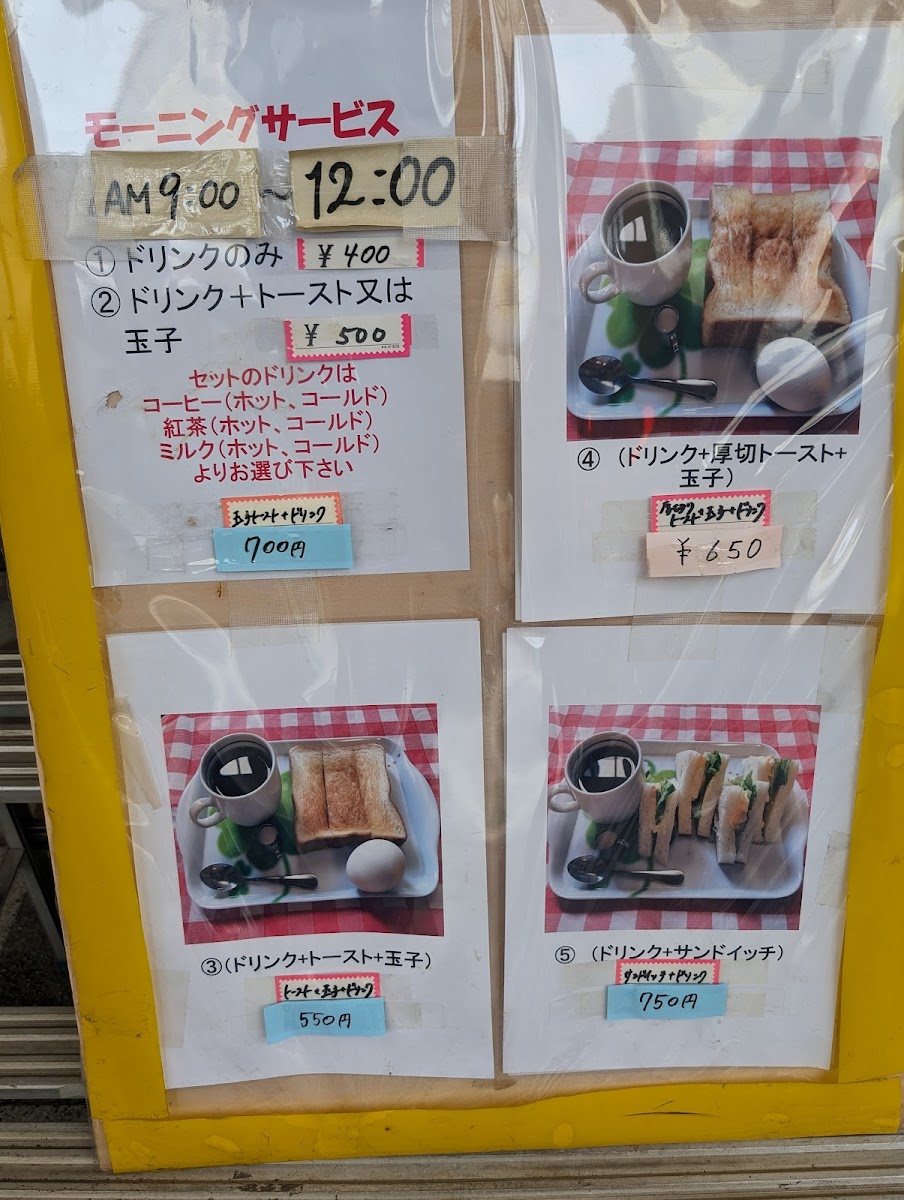 モーニングサービス
AM 9:00 ~ 12:00
① ドリンクのみ ¥400
② ドリンク+トースト又は
玉子 ¥500
セットのドリンクは
コーヒー(ホット、コールド)
紅茶(ホット、コールド)
ミルク(ホット、コールド)
よりお選び下さい
玉子トースト+ドリンク
700円
④ (ドリンク+厚切トースト+
玉子)
トースト+玉子+ドリンク
¥650
③(ドリンク+トースト+玉子)
トースト+玉子+ドリンク
550円
⑤ (ドリンク+サンドイッチ)
サンドイッチ+ドリンク
750円